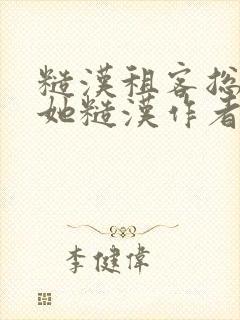 糙漢租客總
她糙漢作者
李健偉